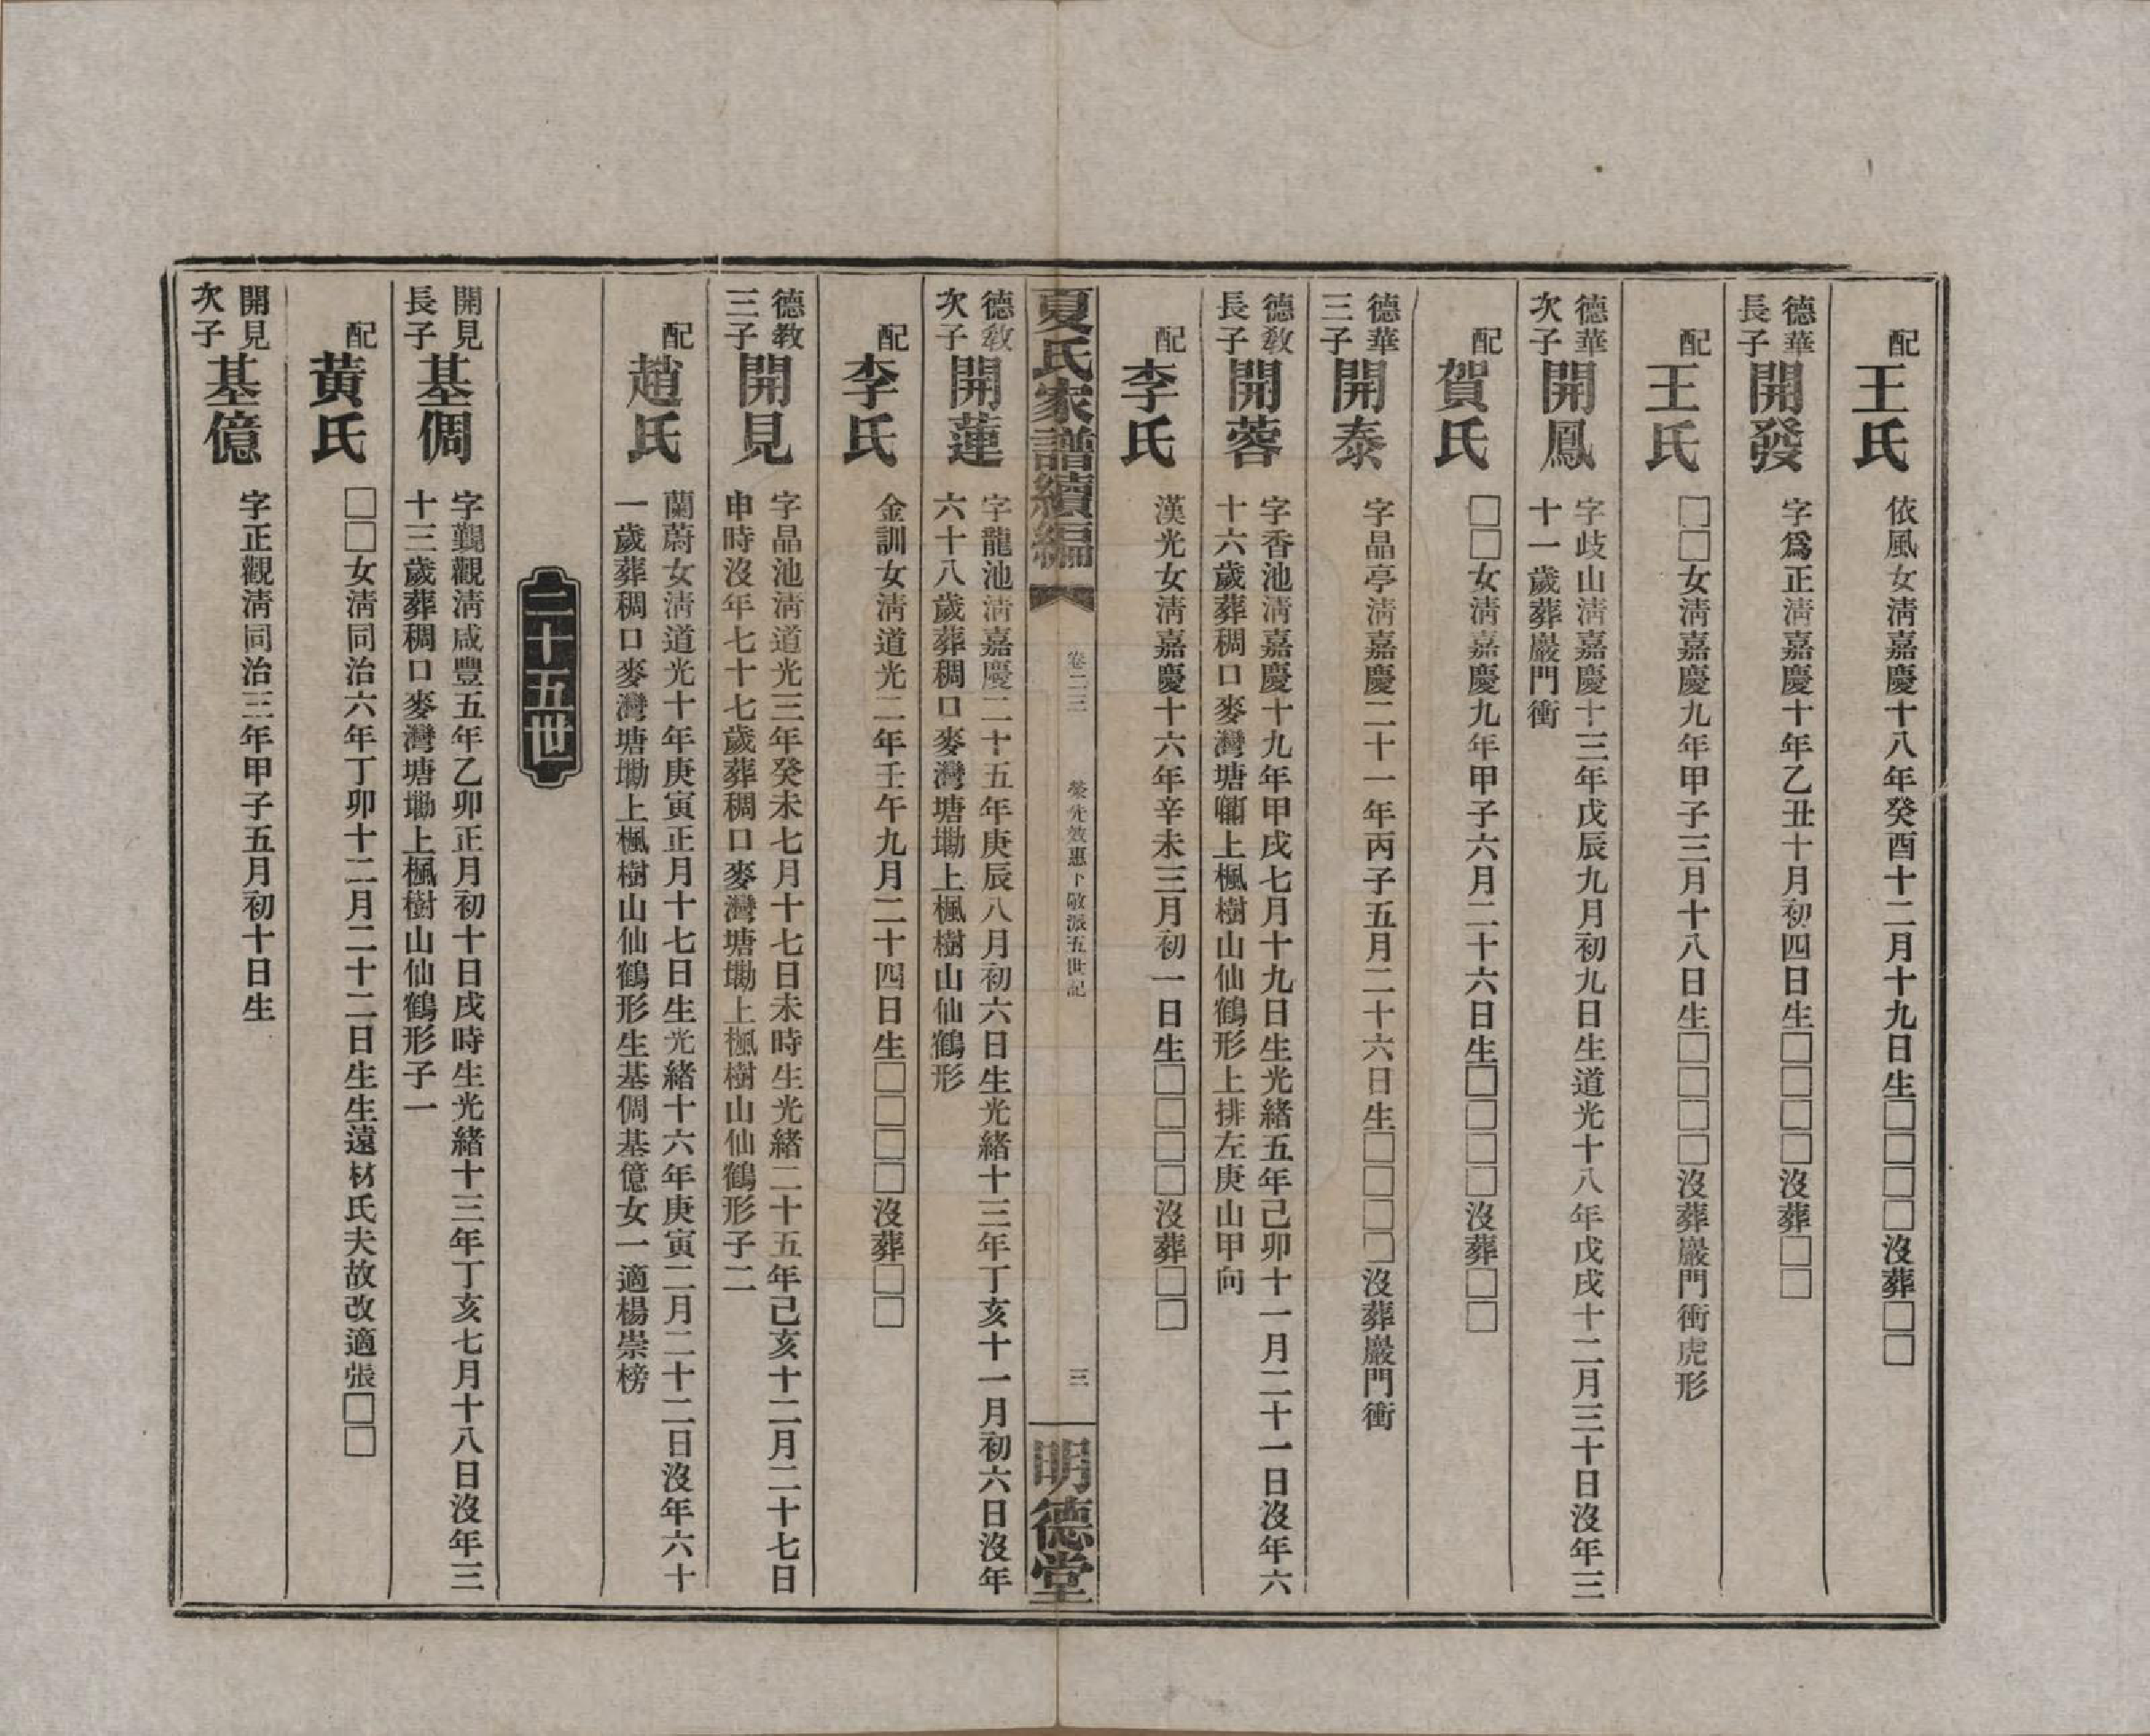 配
王氏
依風女淸嘉慶十八年癸酉十二月十九日生□□□□沒葬□□
德華
長子
開發
字爲正淸嘉慶十年乙丑十月初四日生□□□□沒葬□□
配
王氏
□□女淸嘉慶九年甲子三月十八日生□□□□沒葬巖門衝虎形
德華
次子
開鳳
字歧山淸嘉慶十三年戊辰九月初九日生道光十八年戊戌十二月三十日沒年三
十一歲葬巖門衝
配
賀氏
□□女淸嘉慶九年甲子六月二十六日生□□□□沒葬□□
德華
三子
開泰
字晶亭淸嘉慶二十一年丙子五月二十六日生□□□□沒葬巖門衝
德教
長子
開蓉
字香池淸嘉慶十九年甲戌七月十九日生光緒五年己卯十一月二十一日沒年六
十六歲葬稠口麥灣塘上楓樹山仙鶴形上排左庚山甲向
配
李氏
漢光女淸嘉慶十六年辛未三月初一日生□□□□沒葬□□
夏氏家譜續編
卷二三
榮先效惠下敬派五世記
三
明德堂
德教
次子
開蓮
字龍池淸嘉慶二十五年庚辰八月初六日生光緒十三年丁亥十一月初六日沒年
六十八歲葬稠口麥灣塘墈上楓樹山仙鶴形
配
李氏
金訓女淸道光二年壬午九月二十四日生□□□□沒葬□□
德教
三子
開見
字晶池淸道光三年癸未七月十七日未時生光緒二十五年己亥十二月二十七日
申時沒年七十七歲葬稠口麥灣塘墈上楓樹山仙鶴形子二
配
趙氏
蘭蔚女淸道光十年庚寅正月十七日生光緒十六年庚寅二月二十二日沒年六十
一歲葬稠口麥灣塘墈上楓樹山仙鶴形生基倜基億女一適楊崇榜
二十五世
開見
長子
基倜
字觐觀淸咸豐五年乙卯正月初十日戌時生光緒十三年丁亥七月十八日沒年三
十三歲葬稠口麥灣塘墈上楓樹山仙鶴形子一
配
黃氏
□□女淸同治六年丁卯十二月二十二日生生遠材氏夫故改適張□□
開見
次子
基億
字正觀淸同治三年甲子五月初十日生